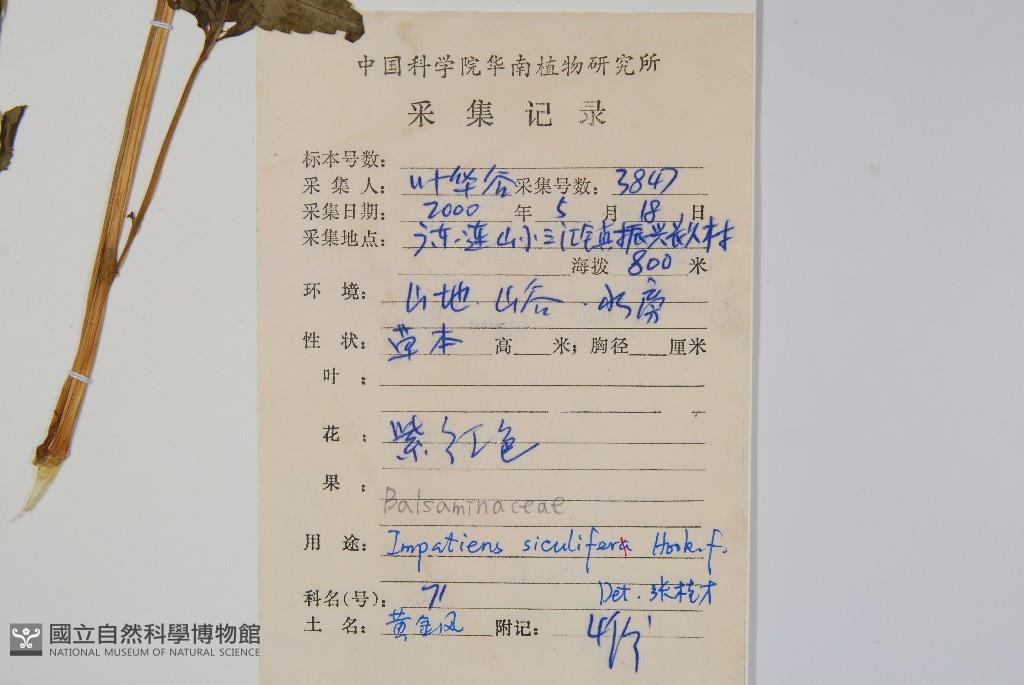 中国科学院华南植物研究所
采集记录
标本号数:
采集人: 叶华谷 采集号数: 3847
采集日期: 2000 年 5 月 18 日
采集地点: 广东.连山小三江镇振兴村
海拨 800 米
环境: 山地.山谷.水旁
性状: 草本 高 米; 胸径 厘米
叶:
花: 紫红色
果:
Balsaminaceae
用途: Impatiens siculifera Hook.f.
科名(号): 71 Det. 张桂才
土名: 黄金凤 附记: 4份
國立自然科學博物館
NATIONAL MUSEUM OF NATURAL SCIENCE